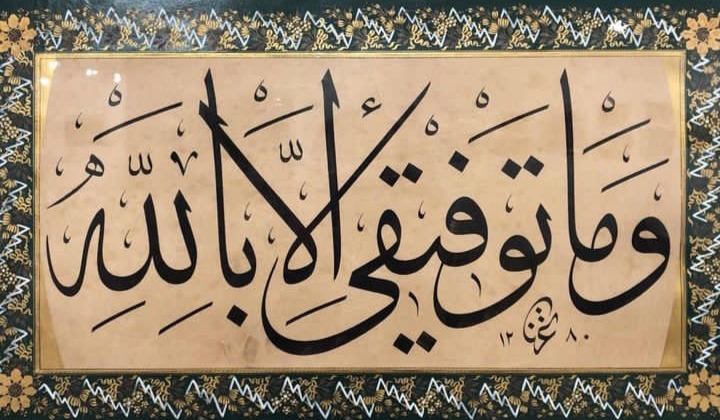 وَمَا تَوْفِيقِي إِلَّا بِاللَّهِ
١٢ ٨٠